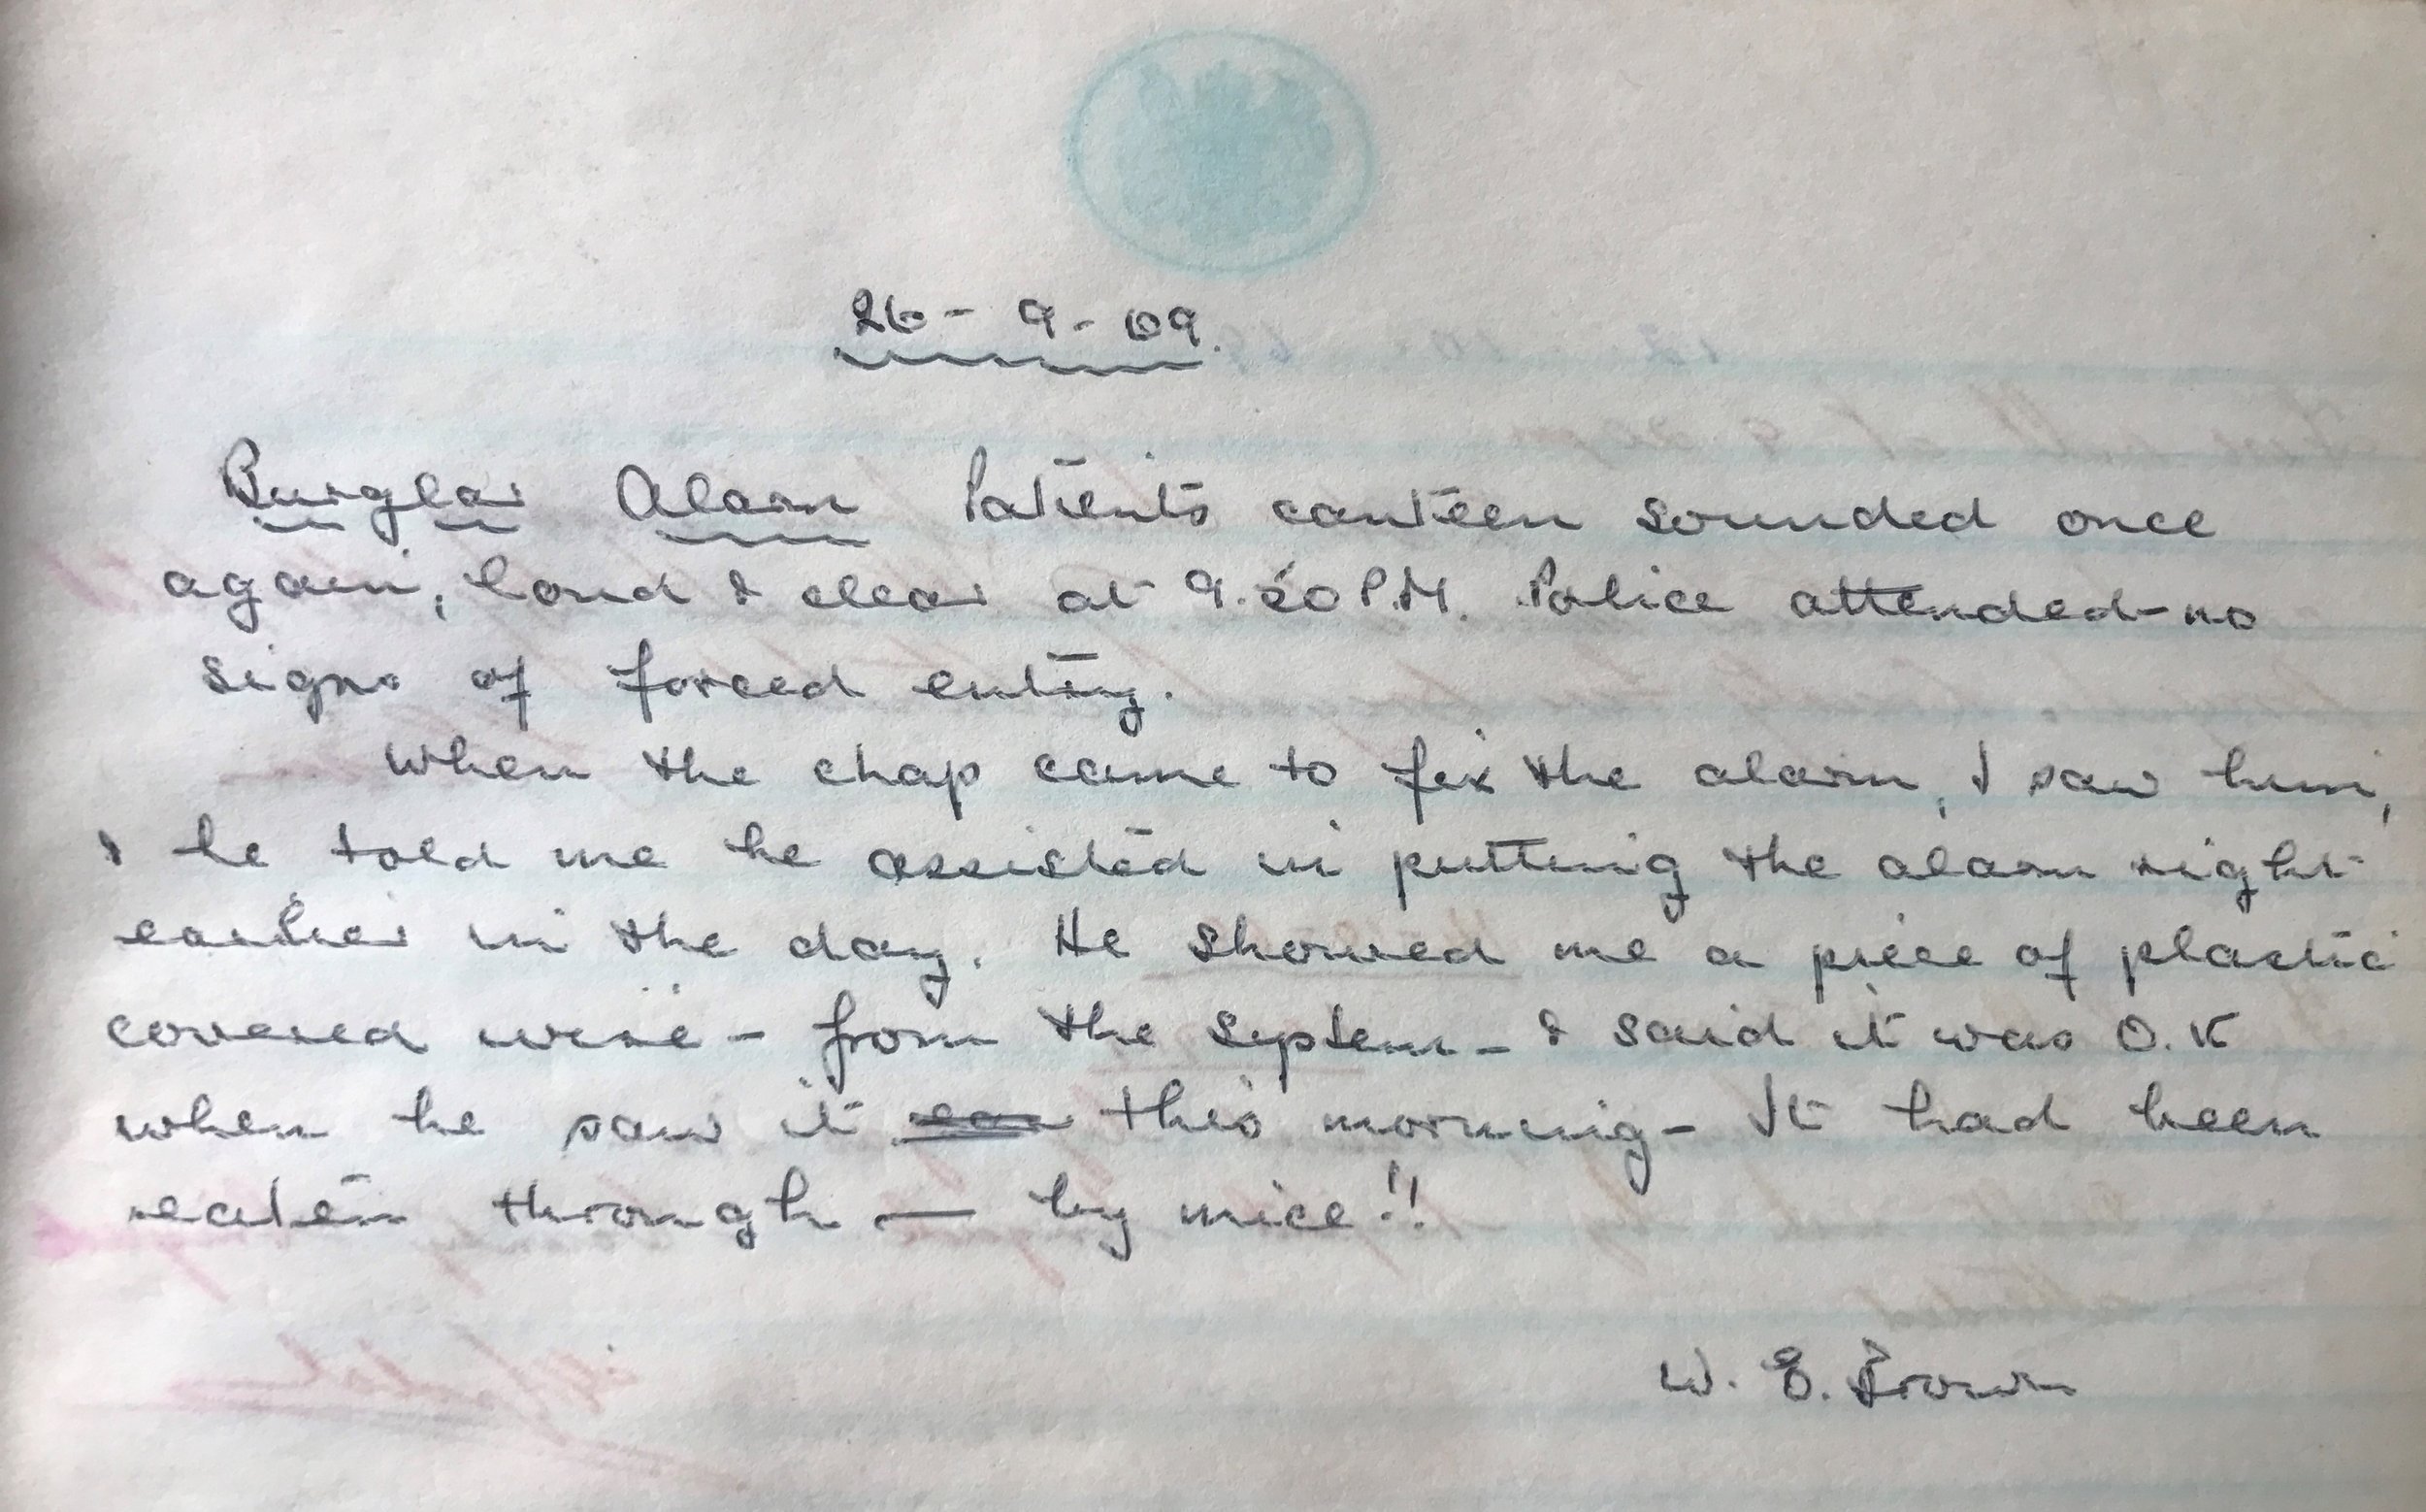 26 - 9 - 69.
Burglar Alarm Patients canteen sounded once
again, loud & clear at 9.20 P.M. Police attended - no
signs of forced entry.
When the chap came to fix the alarm, I saw him,
& he told me he assisted in putting the alarm right
earlier in the day. He showed me a piece of plastic
covered wire - from the system - & said it was O.K
when he saw it this morning - It had been
eaten through — by mice!!
W. E. Brown